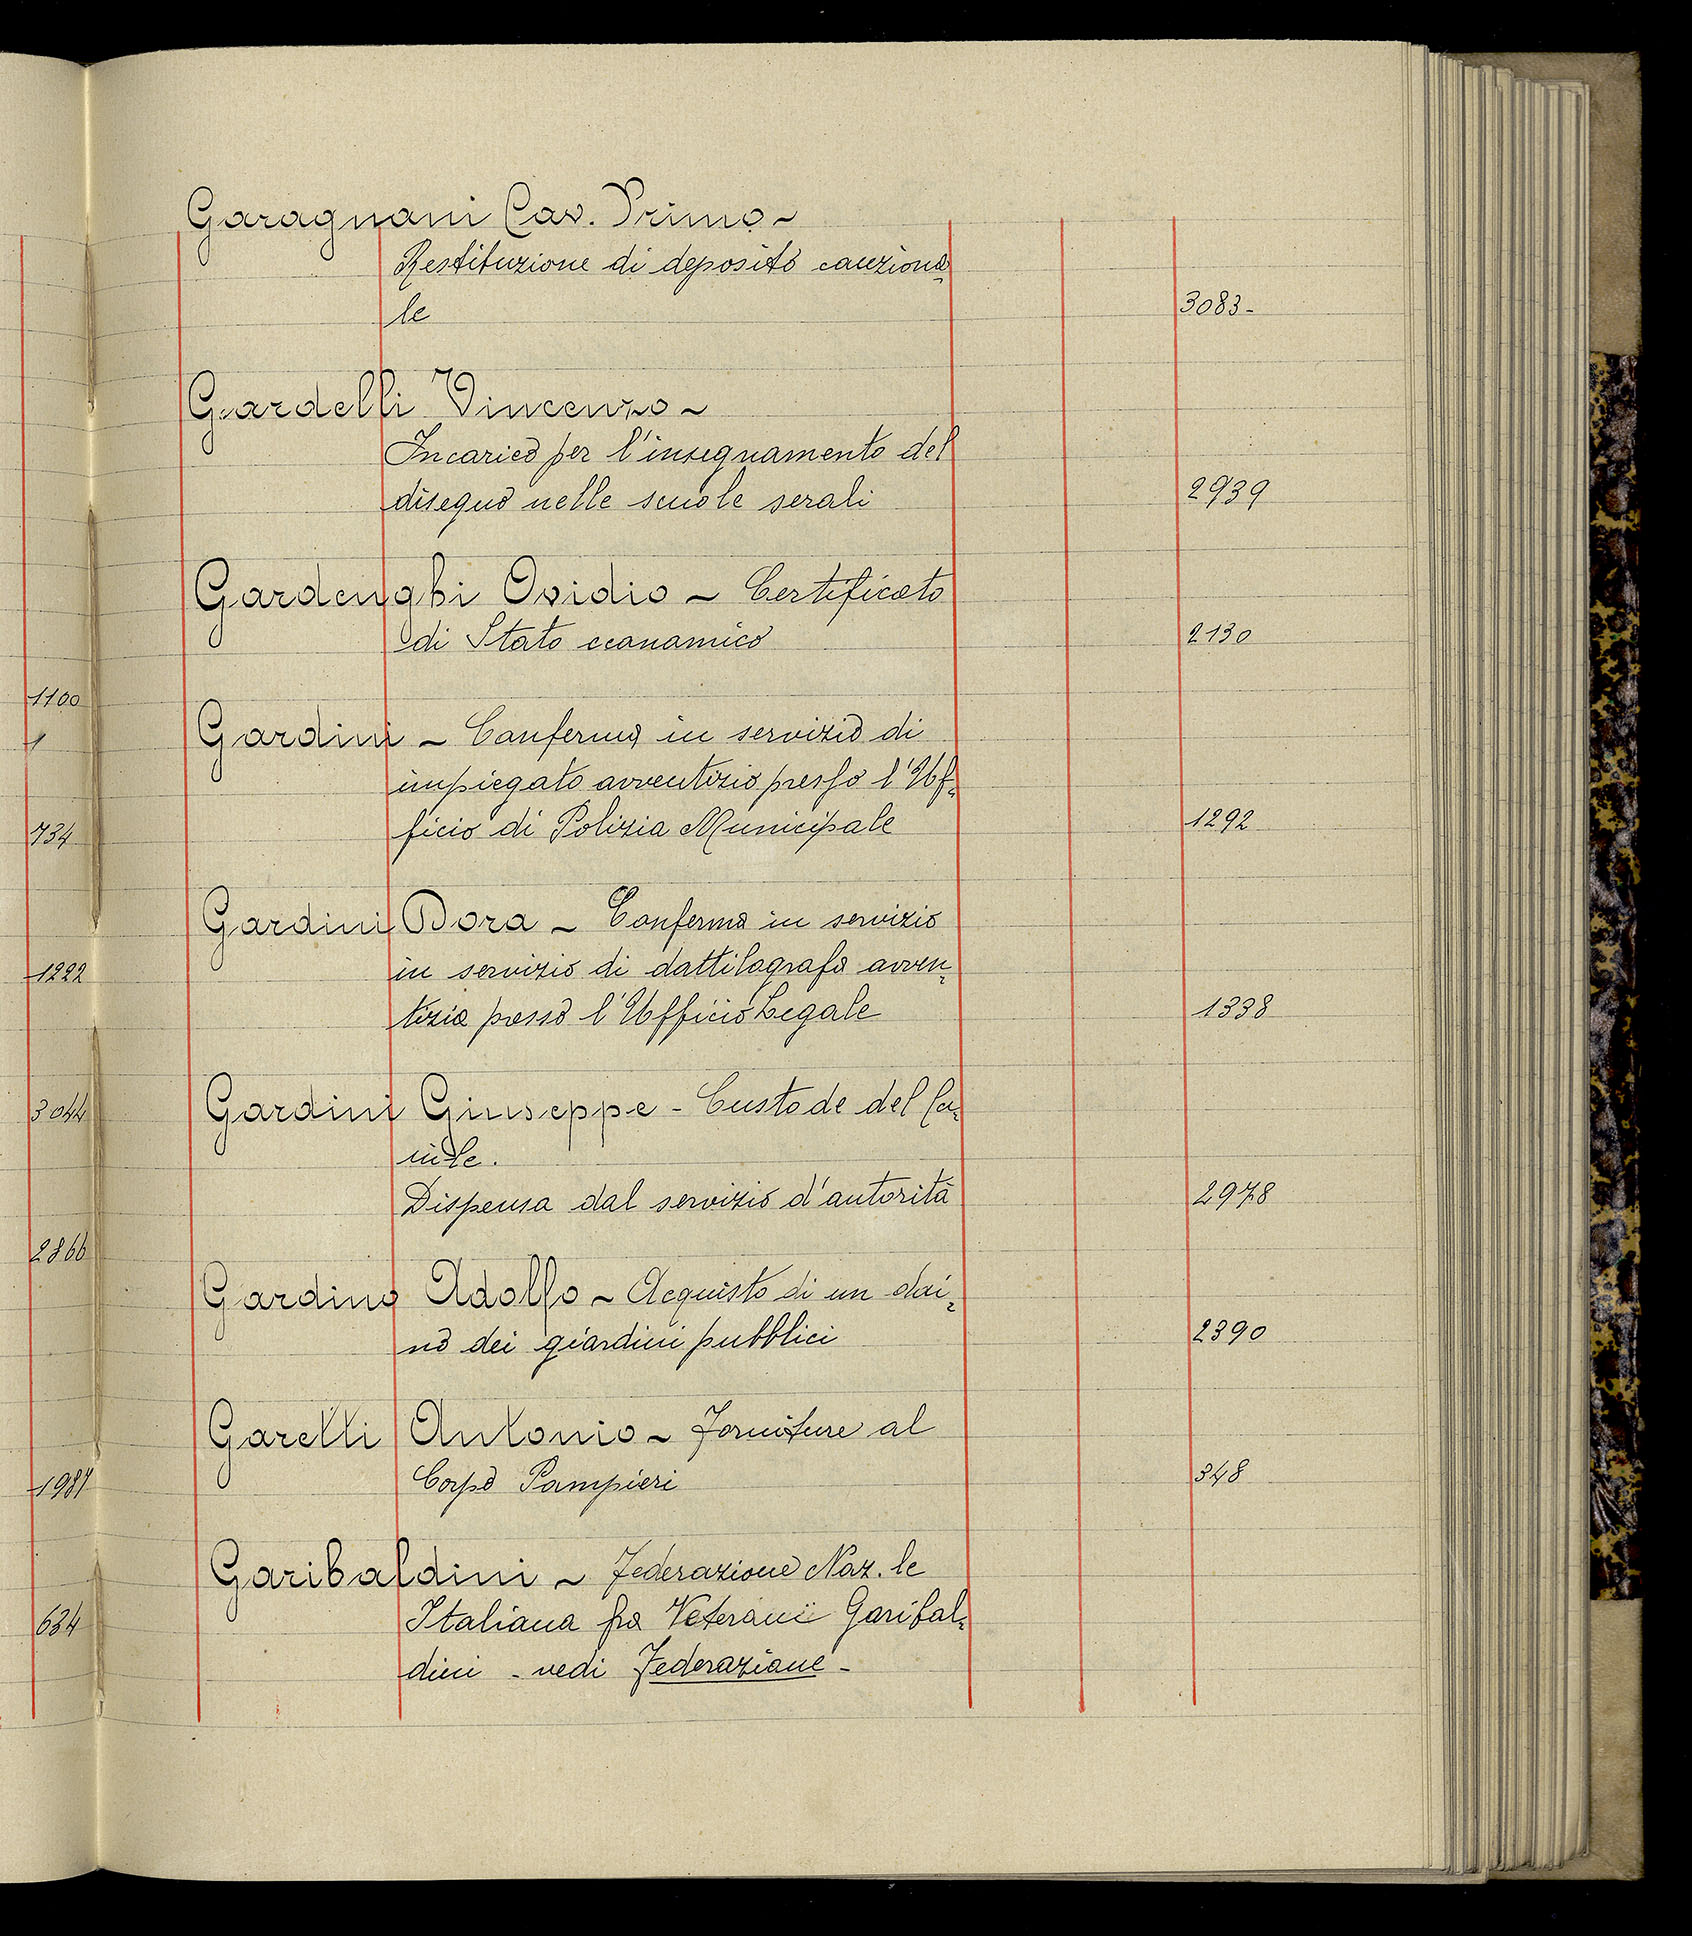 Garagnani Cav. Primo ~
Restituzione di deposito cauziona-
le 3083-
Gardelli Vincenzo ~
Incarico per l'insegnamento del
disegno nelle scuole serali 2939
Gardenghi Ovidio ~ Certificato
di Stato economico 2130
Gardini ~ Conferma in servizio di
impiegato avventizio presso l'Uf-
ficio di Polizia Municipale 1292
Gardini Dora ~ Conferma in servizio
in servizio di dattilografa avven-
tizia presso l'Ufficio Legale 1338
Gardini Giuseppe - Custode del Ca-
nile.
Dispensa dal servizio d'autorità 2978
Gardino Adolfo ~ Acquisto di un dai-
no dei giardini pubblici 2390
Garetti Antonio ~ Forniture al
Corpo Pompieri 348
Garibaldini ~ Federazione Naz.le
Italiana fra Veterani Garibal-
dini - vedi Federazione -
1100
1
734
1222
3044
2866
1987
634